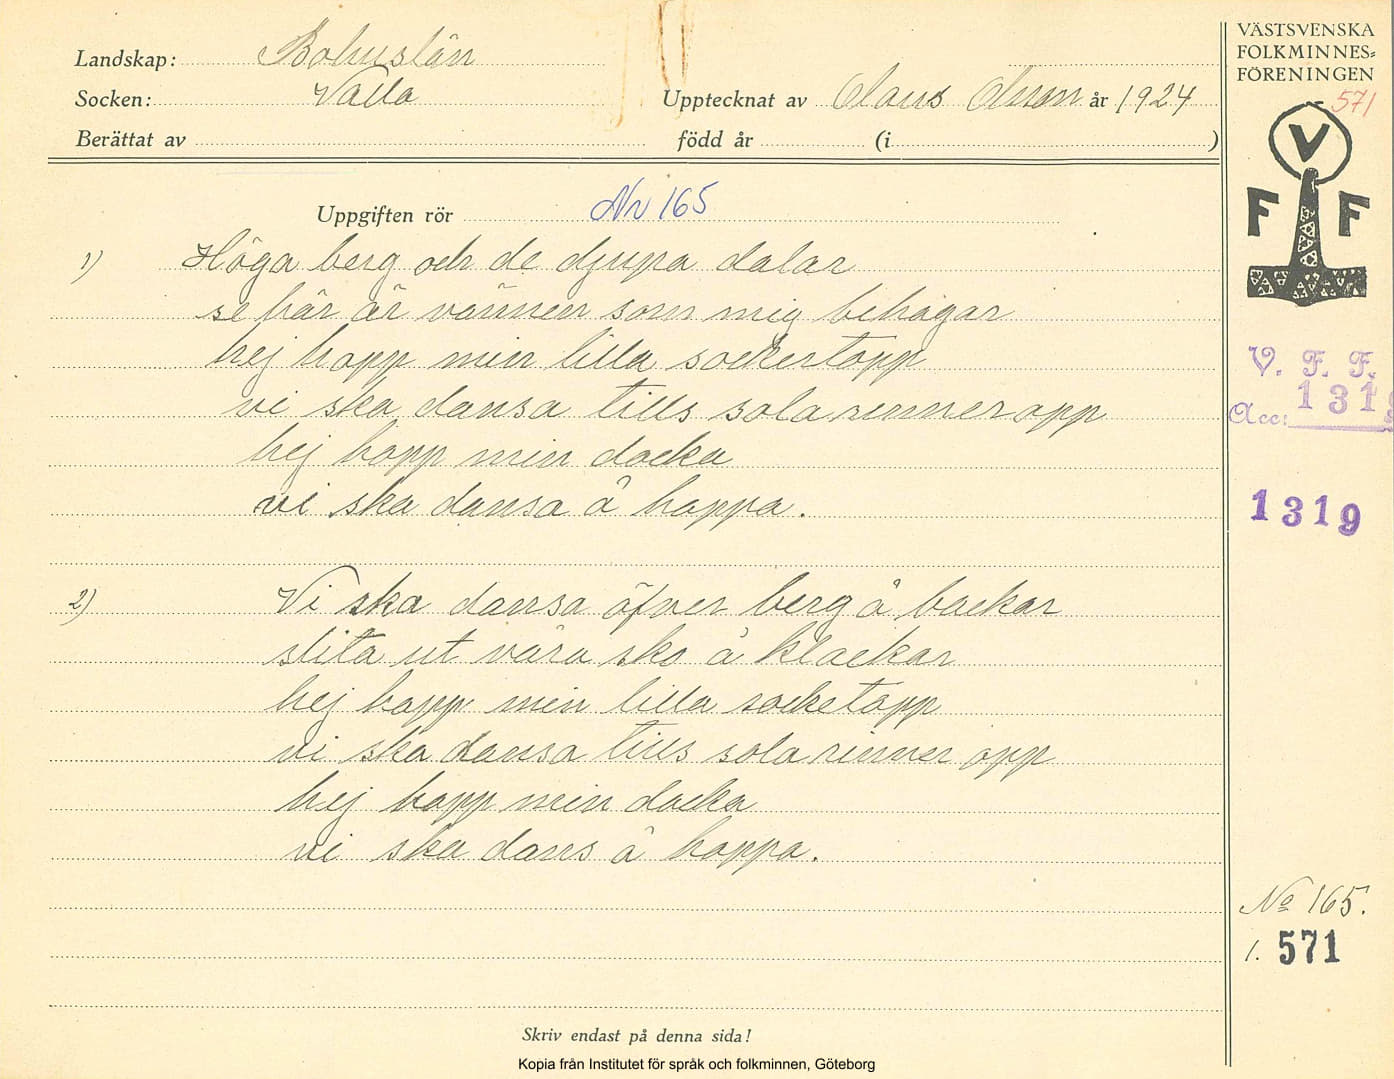 Landskap: Bohuslän
Socken: Valla
Upptecknat av Claus Olsson år 1924
Berättat av
född år (i )
Uppgiften rör Nr 165
1) Höga berg och de djupa dalar
se här är vännen som mig behagar
hej hopp min lilla sockertopp
vi ska dansa tills sola rinner opp
hej hopp min docka
vi ska dansa å hoppa.
2) Vi ska dansa öfver berg å backar
slita ut våra sko å klackar
hej hopp min lilla socketopp
vi ska dansa tills sola rinner opp
hej hopp min docka
vi ska dans å hoppa.
Skriv endast på denna sida!
Kopia från Institutet för språk och folkminnen, Göteborg
VÄSTSVENSKA
FOLKMINNES=
FÖRENINGEN
571
V
F F
V. F. F.
Acc: 1319
1319
No 165.
1. 571